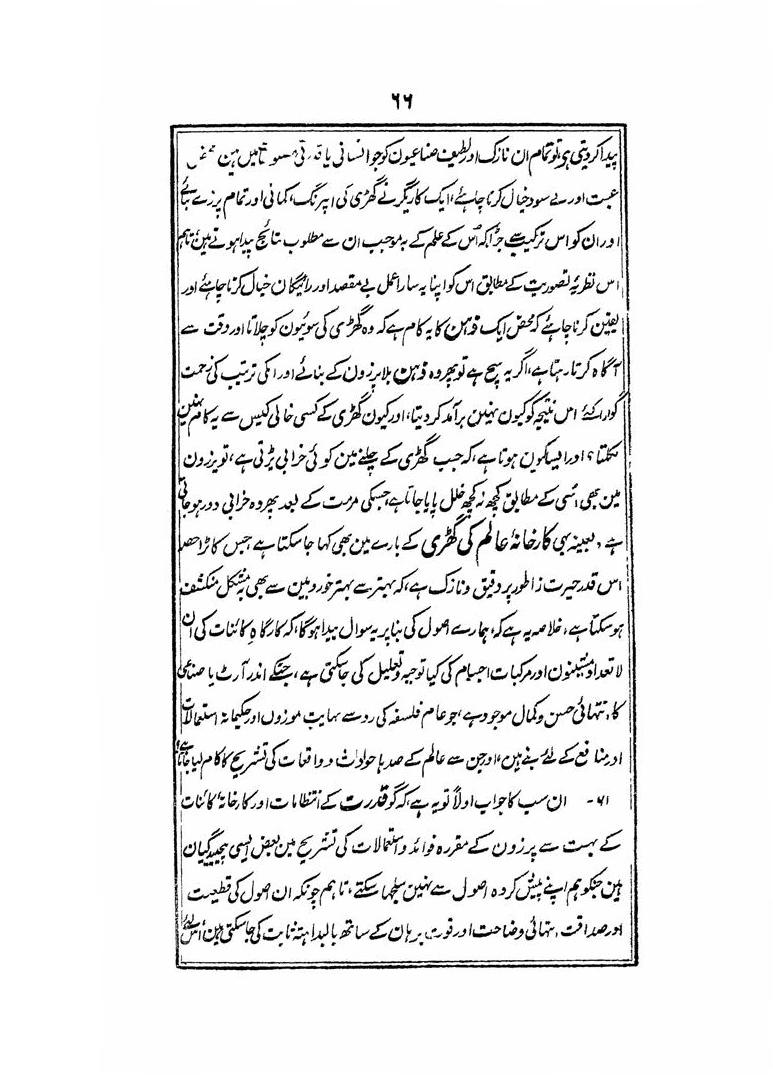 ۶۶
پیدا کر دیتی ہی، تو تمام ان نازک اور لطیف صناعیون کو جو انسانی یا قدرتی مصنوعات مین ہین محض
عبث اور بے سود خیال کرنا چاہئے، ایک کاریگر نے گھڑی کی اسپرنگ، کمانی اور تمام پرزے بنائے
اور ان کو اس ترکیب سے جڑا کہ اس کے علم کے بموجب ان سے مطلوب نتائج پیدا ہوتے ہین، تاہم
اس نظریۂ تصوریت کے مطابق اس کو اپنا یہ سارا عمل بے مقصد اور رائیگان خیال کرنا چاہئے اور
یقین کرنا چاہئے کہ محض ایک ذہن کا یہ کام ہے کہ وہ گھڑی کی سوئیون کو چلاتا اور وقت سے
آگاہ کرتا رہتا ہے، اگر یہ سچ ہے تو پھر وہ ذہن بلا پرزون کے بنائے اور انکی ترتیب کی زحمت
گوارا کئے اس نتیجہ کو کیون نہین برآمد کر دیتا، اور کیون گھڑی کے کسی خالی کیس سے یہ کام نہین
نکلتا؟ اور ایسا کیون ہوتا ہے، کہ جب گھڑی کے چلنے مین کوئی خرابی پڑتی ہے، تو پرزون
مین بھی اسی کے مطابق کچھ نہ کچھ خلل پایا جاتا ہے جسکی مرمت کے بعد پھر وہ خرابی دور ہو جاتی
ہے، بعینہ یہی کارخانۂ عالم کی گھڑی کے بارے مین بھی کہا جا سکتا ہے جس کا بڑا حصہ
اس قدر حیرت زا طور پر دقیق و نازک ہے، کہ بہتر سے بہتر خوردبین سے بھی بمشکل منکشف
ہو سکتا ہے، خلاصہ یہ ہے کہ، ہمارے اصول کی بنا پر یہ سوال پیدا ہوگا، کہ کارگاہِ کائنات کی ان
لا تعداد مشینون اور مرکبات اجسام کی کیا توجیہ و تعلیل کی جا سکتی ہے، جنکے اندر آرٹ یا صناعی
کا انتہائی حسن و کمال موجود ہے، جو عام فلسفہ کی رو سے نہایت موزون اور حکیمانہ استعمالات
اور منافع کے لئے بنے ہین، اور جن سے عالم کے صدہا حوادث و واقعات کی تشریح کا کام لیا جاتا ہے؟
۶۱- ان سب کا جواب اولاً تو یہ ہے، کہ گو قدرت کے انتظامات اور کارخانۂ کائنات
کے بہت سے پرزون کے مقررہ فوائد و استعمالات کی تشریح مین بعض ایسی پیچیدگیان
ہین جنکو ہم اپنے پیش کردہ اصول سے نہین سلجھا سکتے، تاہم چونکہ ان اصول کی قطعیت
اور صداقت انتہائی وضاحت اور قوت برہان کے ساتھ بالبداہتہ ثابت کی جا سکتی ہین، اس لئے